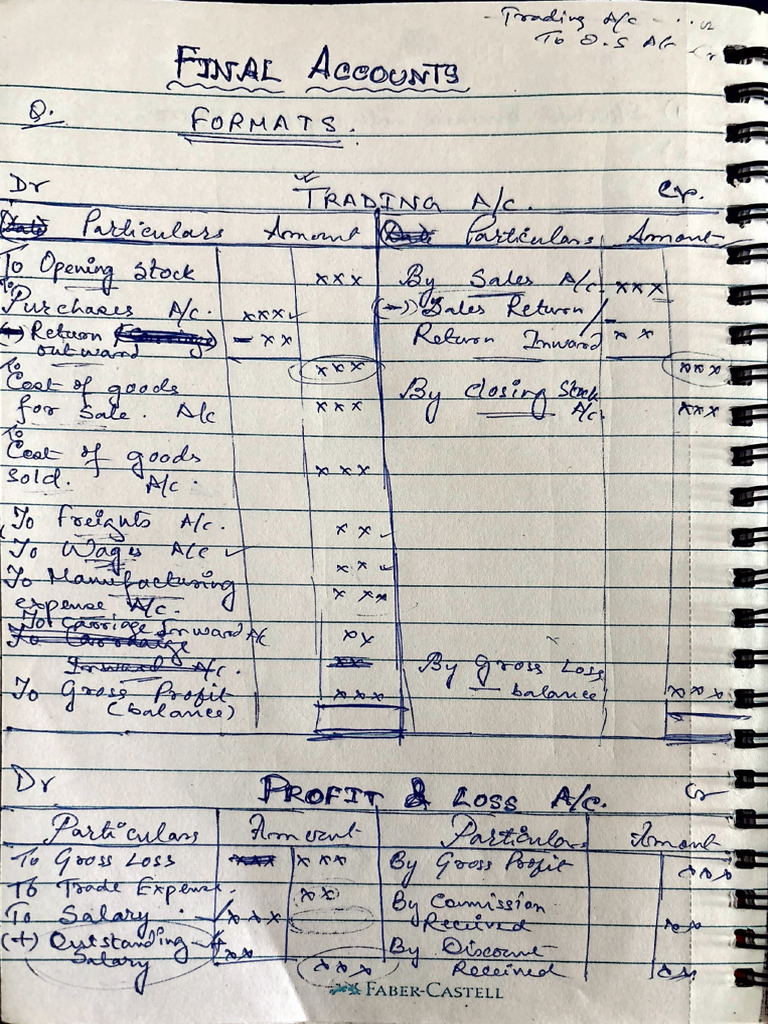 - Trading A/c
To O.S A/c
FINAL ACCOUNTS
Q. FORMATS.
Dr TRADING A/c. Cr.
Particulars Amount Particulars Amount
To Opening Stock xxx By Sales A/c xxx
To Purchases A/c. xxx (-) Sales Return /
Return outward - xx Return Inward xx
xxx xxx
To Cost of goods for sale. A/c xxx By Closing Stock A/c. xxx
To Cost of goods sold. A/c. xxx
To Freights A/c. xx
To Wages A/c xx
To Manufacturing expense A/c. xxx
To carriage inward A/c xx
To Carriage
Inward A/c. xx
To Gross Profit (balance) xxx By Gross Loss balance xxx
Dr PROFIT & LOSS A/c. Cr
Particulars Amount Particulars Amount
To Gross Loss xxx xxx By Gross Profit xxx
To Trade Expense. xx By Commission Received xx
To Salary. xxx By Discount Received xx
(+) Outstanding Salary xx xxx
FABER-CASTELL